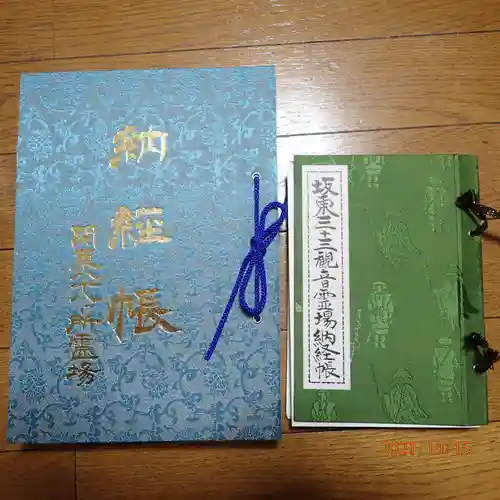 納経帳
関東八十八ヶ所霊場
坂東三十三観音霊場納経帳